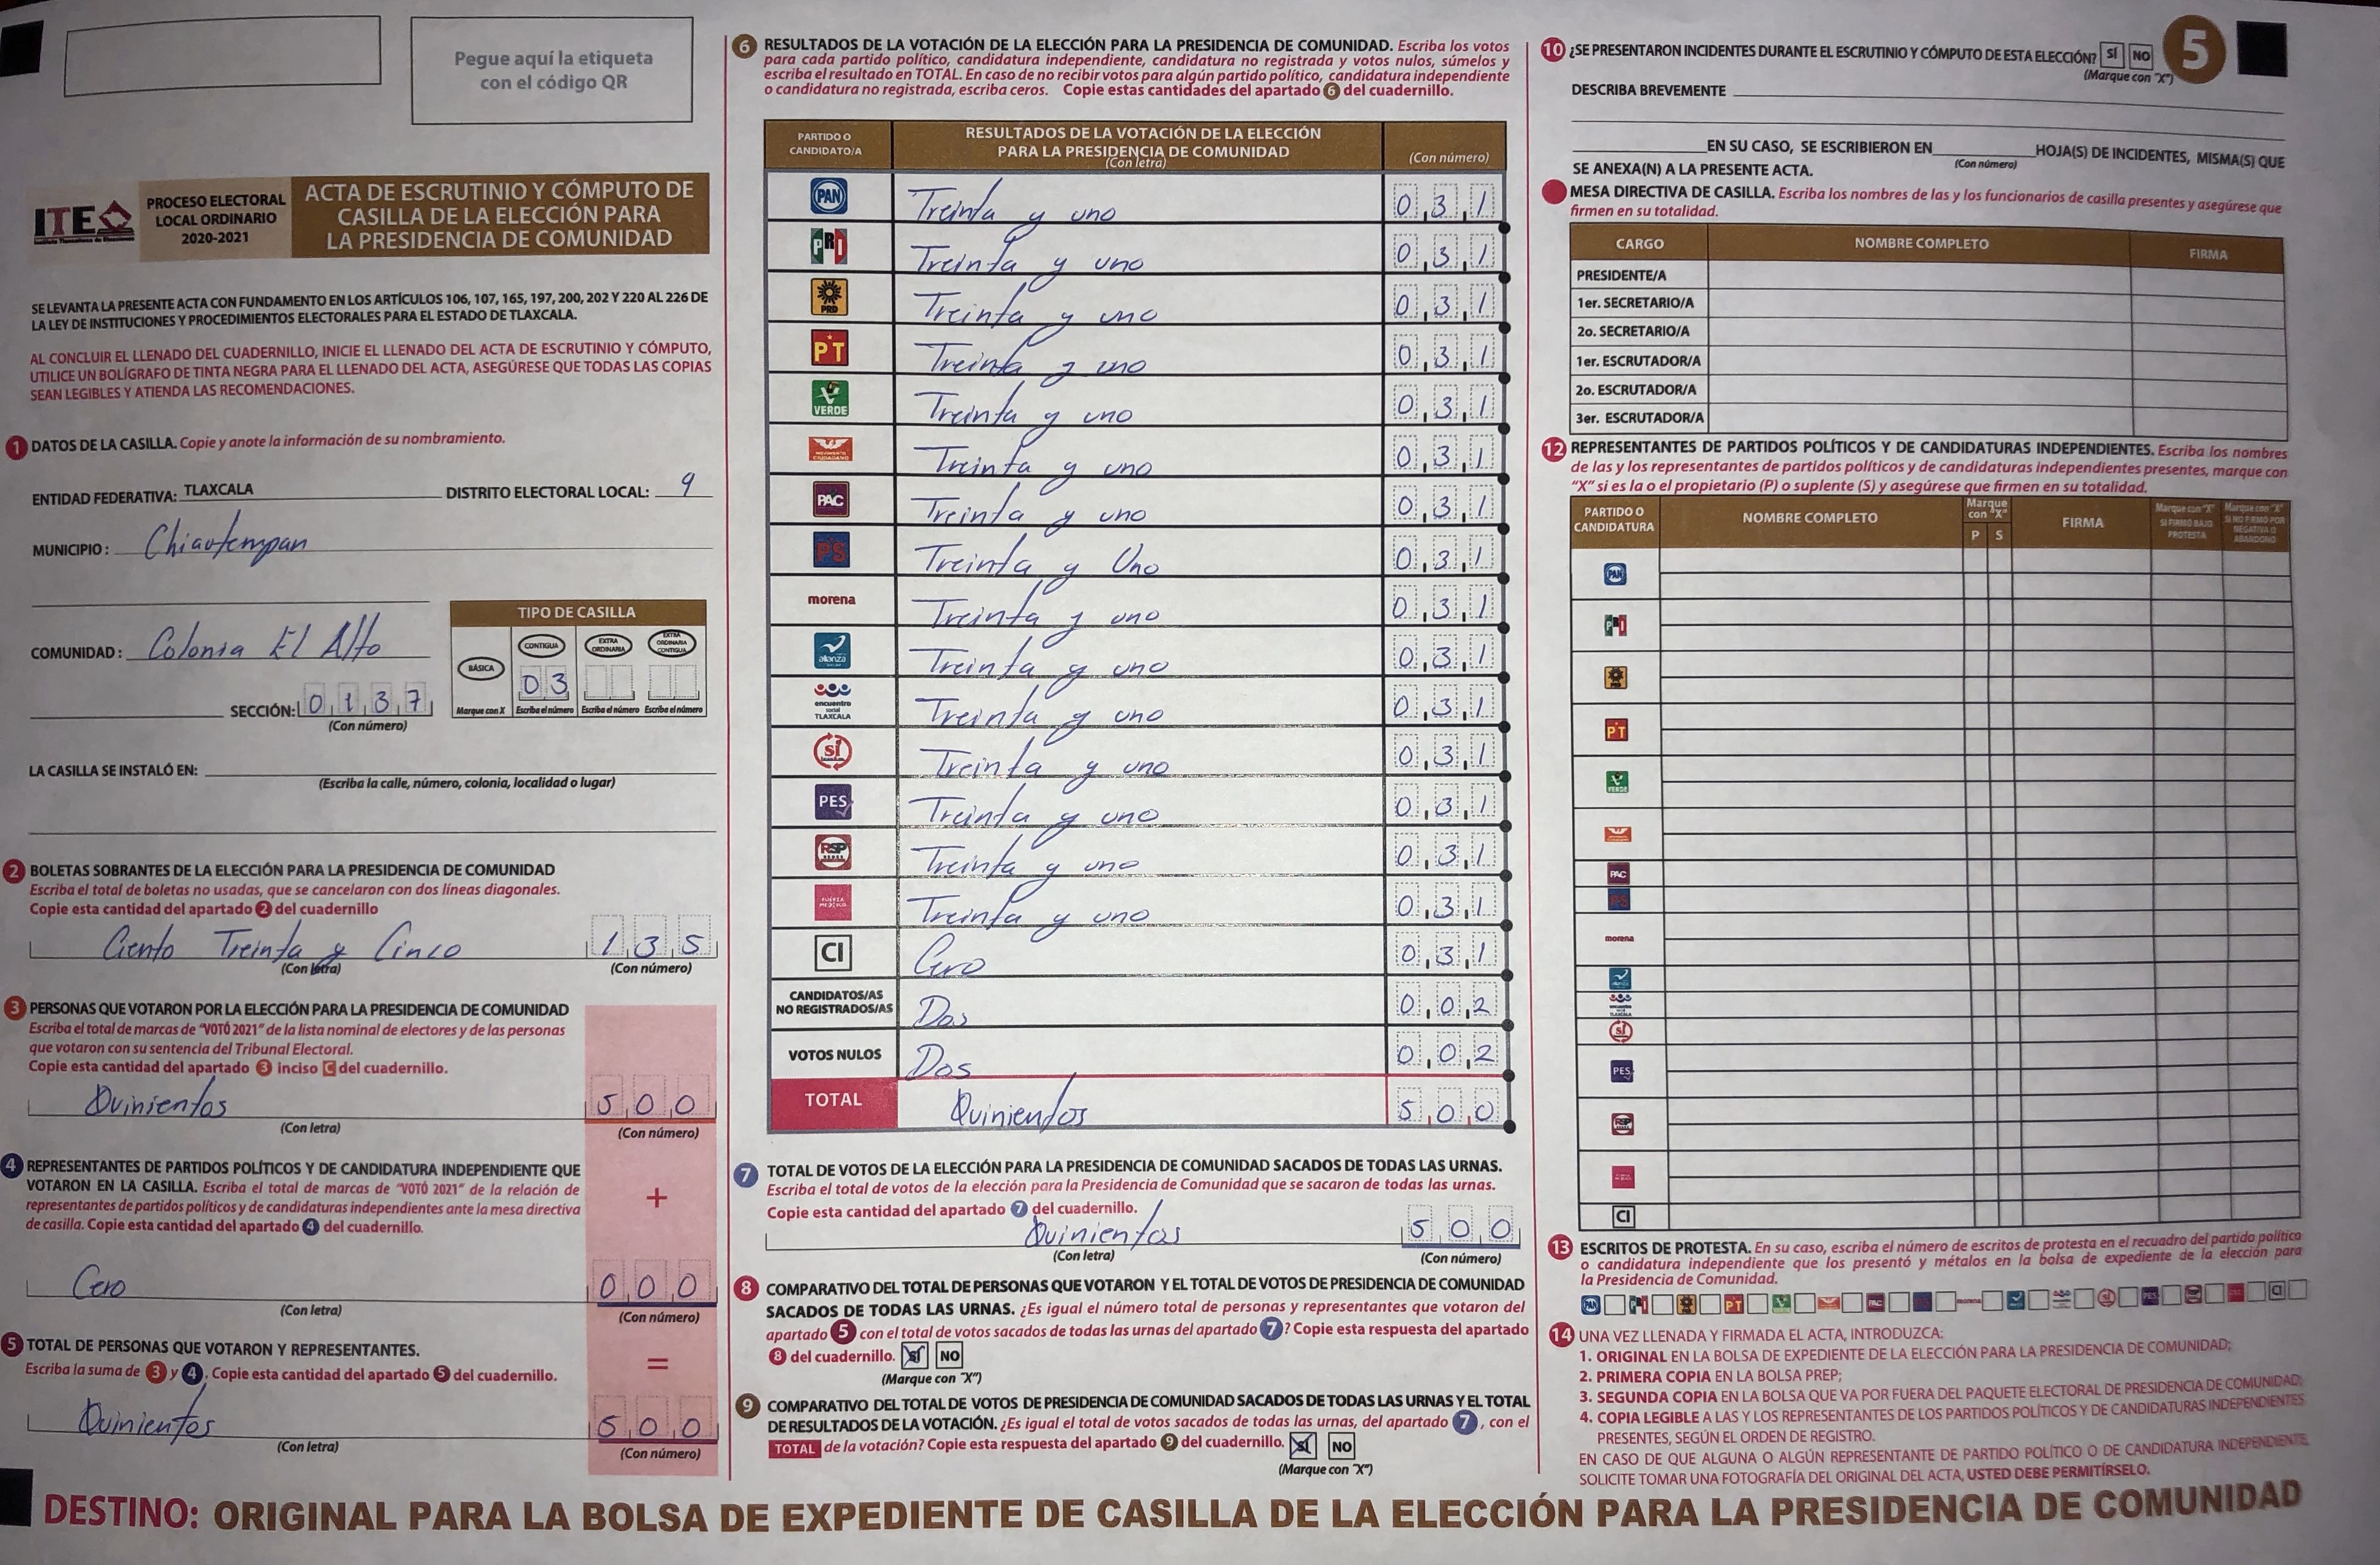 Pegue aquí la etiqueta
con el código QR
ITE
PROCESO ELECTORAL
LOCAL ORDINARIO
2020-2021
ACTA DE ESCRUTINIO Y CÓMPUTO DE
CASILLA DE LA ELECCIÓN PARA
LA PRESIDENCIA DE COMUNIDAD
SE LEVANTA LA PRESENTE ACTA CON FUNDAMENTO EN LOS ARTÍCULOS 106, 107, 165, 197, 200, 202 Y 220 AL 226 DE
LA LEY DE INSTITUCIONES Y PROCEDIMIENTOS ELECTORALES PARA EL ESTADO DE TLAXCALA.
AL CONCLUIR EL LLENADO DEL CUADERNILLO, INICIE EL LLENADO DEL ACTA DE ESCRUTINIO Y CÓMPUTO,
UTILICE UN BOLÍGRAFO DE TINTA NEGRA PARA EL LLENADO DEL ACTA, ASEGÚRESE QUE TODAS LAS COPIAS
SEAN LEGIBLES Y ATIENDA LAS RECOMENDACIONES.
1 DATOS DE LA CASILLA. Copie y anote la información de su nombramiento.
ENTIDAD FEDERATIVA: TLAXCALA DISTRITO ELECTORAL LOCAL: 9
MUNICIPIO: Chiautempan
COMUNIDAD: Colonia El Alto
SECCIÓN: 0 1 3 7
(Con número)
TIPO DE CASILLA
BÁSICA CONTIGUA EXTRA ORDINARIA EXTRA ORDINARIA CONTIGUA
0 3
Marque con X Escriba el número Escriba el número Escriba el número
LA CASILLA SE INSTALÓ EN:
(Escriba la calle, número, colonia, localidad o lugar)
2 BOLETAS SOBRANTES DE LA ELECCIÓN PARA LA PRESIDENCIA DE COMUNIDAD
Escriba el total de boletas no usadas, que se cancelaron con dos líneas diagonales.
Copie esta cantidad del apartado 2 del cuadernillo
Ciento Treinta y Cinco 1 3 5
(Con letra) (Con número)
3 PERSONAS QUE VOTARON POR LA ELECCIÓN PARA LA PRESIDENCIA DE COMUNIDAD
Escriba el total de marcas de "VOTÓ 2021" de la lista nominal de electores y de las personas
que votaron con su sentencia del Tribunal Electoral.
Copie esta cantidad del apartado 3 inciso C del cuadernillo.
Quinientos 5 0 0
(Con letra) (Con número)
4 REPRESENTANTES DE PARTIDOS POLÍTICOS Y DE CANDIDATURA INDEPENDIENTE QUE
VOTARON EN LA CASILLA. Escriba el total de marcas de "VOTÓ 2021" de la relación de
representantes de partidos políticos y de candidaturas independientes ante la mesa directiva
de casilla. Copie esta cantidad del apartado 4 del cuadernillo.
+
Cero 0 0 0
(Con letra) (Con número)
5 TOTAL DE PERSONAS QUE VOTARON Y REPRESENTANTES.
Escriba la suma de 3 y 4. Copie esta cantidad del apartado 5 del cuadernillo.
=
Quinientos 5 0 0
(Con letra) (Con número)
6 RESULTADOS DE LA VOTACIÓN DE LA ELECCIÓN PARA LA PRESIDENCIA DE COMUNIDAD. Escriba los votos
para cada partido político, candidatura independiente, candidatura no registrada y votos nulos, súmelos y
escriba el resultado en TOTAL. En caso de no recibir votos para algún partido político, candidatura independiente
o candidatura no registrada, escriba ceros. Copie estas cantidades del apartado 6 del cuadernillo.
PARTIDO O CANDIDATO/A RESULTADOS DE LA VOTACIÓN DE LA ELECCIÓN PARA LA PRESIDENCIA DE COMUNIDAD (Con letra) (Con número)
PAN Treinta y uno 0 3 1
PRI Treinta y uno 0 3 1
PRD Treinta y uno 0 3 1
PT Treinta y uno 0 3 1
VERDE Treinta y uno 0 3 1
MOVIMIENTO CIUDADANO Treinta y uno 0 3 1
PAC Treinta y uno 0 3 1
PS Treinta y Uno 0 3 1
morena Treinta y uno 0 3 1
alianza Treinta y uno 0 3 1
encuentro social TLAXCALA Treinta y uno 0 3 1
SÍ Treinta y uno 0 3 1
PES Treinta y uno 0 3 1
RSP Treinta y uno 0 3 1
FUERZA MÉXICO Treinta y uno 0 3 1
CI Cero 0 3 1
CANDIDATOS/AS NO REGISTRADOS/AS Dos 0 0 2
VOTOS NULOS Dos 0 0 2
TOTAL Quinientos 5 0 0
7 TOTAL DE VOTOS DE LA ELECCIÓN PARA LA PRESIDENCIA DE COMUNIDAD SACADOS DE TODAS LAS URNAS.
Escriba el total de votos de la elección para la Presidencia de Comunidad que se sacaron de todas las urnas.
Copie esta cantidad del apartado 7 del cuadernillo.
Quinientos 5 0 0
(Con letra) (Con número)
8 COMPARATIVO DEL TOTAL DE PERSONAS QUE VOTARON Y EL TOTAL DE VOTOS DE PRESIDENCIA DE COMUNIDAD
SACADOS DE TODAS LAS URNAS. ¿Es igual el número total de personas y representantes que votaron del
apartado 5 con el total de votos sacados de todas las urnas del apartado 7? Copie esta respuesta del apartado
8 del cuadernillo. SÍ NO
(Marque con "X")
9 COMPARATIVO DEL TOTAL DE VOTOS DE PRESIDENCIA DE COMUNIDAD SACADOS DE TODAS LAS URNAS Y EL TOTAL
DE RESULTADOS DE LA VOTACIÓN. ¿Es igual el total de votos sacados de todas las urnas, del apartado 7, con el
TOTAL de la votación? Copie esta respuesta del apartado 9 del cuadernillo. SÍ NO
(Marque con "X")
10 ¿SE PRESENTARON INCIDENTES DURANTE EL ESCRUTINIO Y CÓMPUTO DE ESTA ELECCIÓN? SÍ NO
(Marque con "X")
5
DESCRIBA BREVEMENTE
EN SU CASO, SE ESCRIBIERON EN HOJA(S) DE INCIDENTES, MISMA(S) QUE
(Con número)
SE ANEXA(N) A LA PRESENTE ACTA.
MESA DIRECTIVA DE CASILLA. Escriba los nombres de las y los funcionarios de casilla presentes y asegúrese que
firmen en su totalidad.
CARGO NOMBRE COMPLETO FIRMA
PRESIDENTE/A
1er. SECRETARIO/A
2o. SECRETARIO/A
1er. ESCRUTADOR/A
2o. ESCRUTADOR/A
3er. ESCRUTADOR/A
12 REPRESENTANTES DE PARTIDOS POLÍTICOS Y DE CANDIDATURAS INDEPENDIENTES. Escriba los nombres
de las y los representantes de partidos políticos y de candidaturas independientes presentes, marque con
"X" si es la o el propietario (P) o suplente (S) y asegúrese que firmen en su totalidad.
PARTIDO O CANDIDATURA NOMBRE COMPLETO Marque con "X" P S FIRMA Marque con "X" SI FIRMÓ BAJO PROTESTA Marque con "X" SI NO FIRMÓ POR NEGATIVA O ABANDONO
PAN
PRI
PRD
PT
VERDE
PAC
PS
morena
SÍ
PES
RSP
CI
13 ESCRITOS DE PROTESTA. En su caso, escriba el número de escritos de protesta en el recuadro del partido político
o candidatura independiente que los presentó y métalos en la bolsa de expediente de la elección para
la Presidencia de Comunidad.
PAN PRI PRD PT VERDE PAC PS morena SÍ PES RSP CI
14 UNA VEZ LLENADA Y FIRMADA EL ACTA, INTRODUZCA:
1. ORIGINAL EN LA BOLSA DE EXPEDIENTE DE LA ELECCIÓN PARA LA PRESIDENCIA DE COMUNIDAD;
2. PRIMERA COPIA EN LA BOLSA PREP;
3. SEGUNDA COPIA EN LA BOLSA QUE VA POR FUERA DEL PAQUETE ELECTORAL DE PRESIDENCIA DE COMUNIDAD;
4. COPIA LEGIBLE A LAS Y LOS REPRESENTANTES DE LOS PARTIDOS POLÍTICOS Y DE CANDIDATURAS INDEPENDIENTES
PRESENTES, SEGÚN EL ORDEN DE REGISTRO.
EN CASO DE QUE ALGUNA O ALGÚN REPRESENTANTE DE PARTIDO POLÍTICO O DE CANDIDATURA INDEPENDIENTE
SOLICITE TOMAR UNA FOTOGRAFÍA DEL ORIGINAL DEL ACTA, USTED DEBE PERMITÍRSELO.
DESTINO: ORIGINAL PARA LA BOLSA DE EXPEDIENTE DE CASILLA DE LA ELECCIÓN PARA LA PRESIDENCIA DE COMUNIDAD